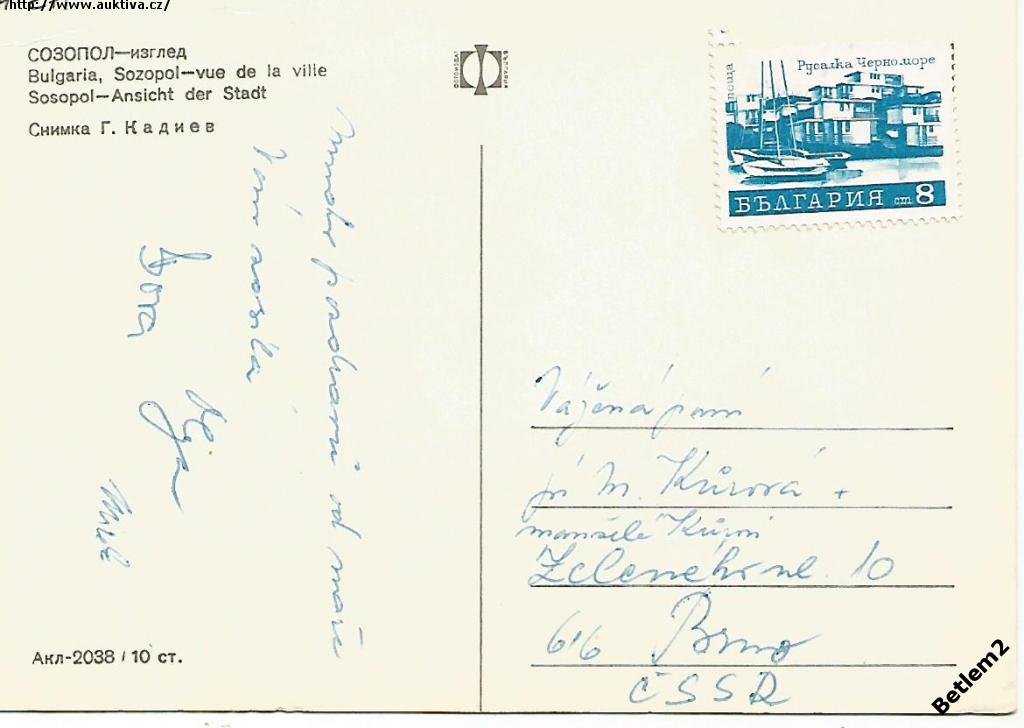 http://www.auktiva.cz/
СОЗОПОЛ—изглед
Bulgaria, Sozopol—vue de la ville
Sosopol—Ansicht der Stadt
Снимка Г. Кадиев
ФОТОИЗДАТ
БЪЛГАРИЯ
поща
Русалка Черноморе
БЪЛГАРИЯ ст 8
Mnoho pozdravů od moře
Vám posílá
Vážená paní
pí M. Kůrová +
manželé Kůrovi
10
616 Brno
ČSSR
Акл-2038 / 10 ст.
Betlem2